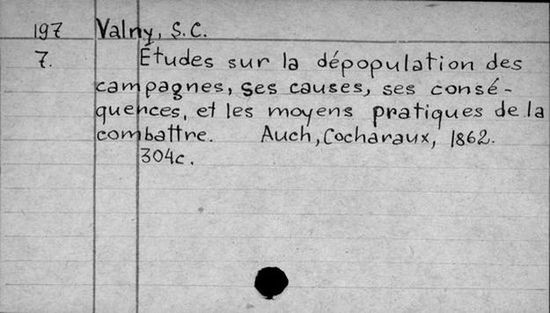 197 Valny, S.C.
7. Études sur la dépopulation des
campagnes, ses causes, ses consé-
quences, et les moyens pratiques de la
combattre. Auch, Cocharaux, 1862.
304c.